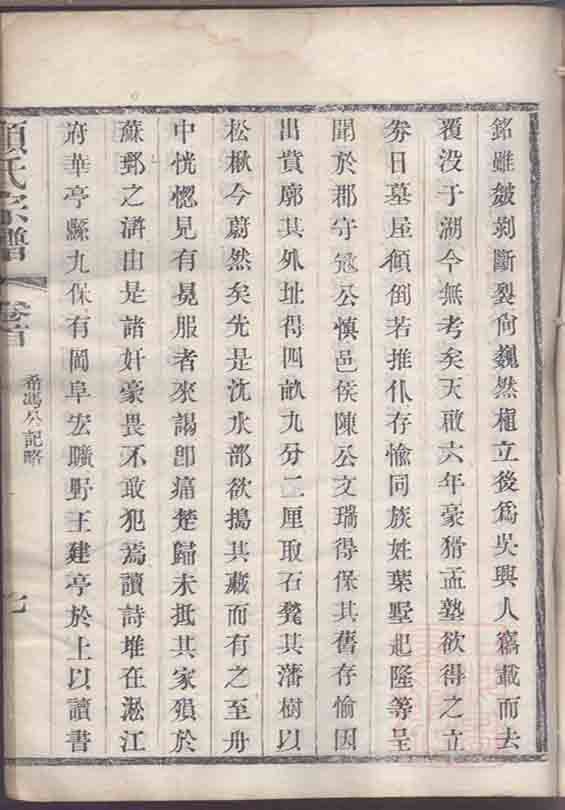 銘雖皴剥斷裂尚巍然植立後爲吳興人竊載而去
覆没于湖今無考矣天啟六年豪猾孟塾欲得之立
劵日墓屋傾倒若推仆存愉同族姓葉墅起隆等呈
聞於郡守寇公慎邑侯陳公文瑞得保其舊存愉因
出貲廓其外址得四畝九分二厘取石甃其藩樹以
松楸今蔚然矣先是沈水部欲搗其藏而有之至舟
中恍惚見有晃服者來謁卽痛楚歸未抵其家殞於
蘇郵之滸由是諸奸豪畏不敢犯焉讀詩堆在淞江
府華亭縣九保有圓阜宏曠野王建亭於上以讀書
顧氏宗譜
卷首
希馮公記略
七